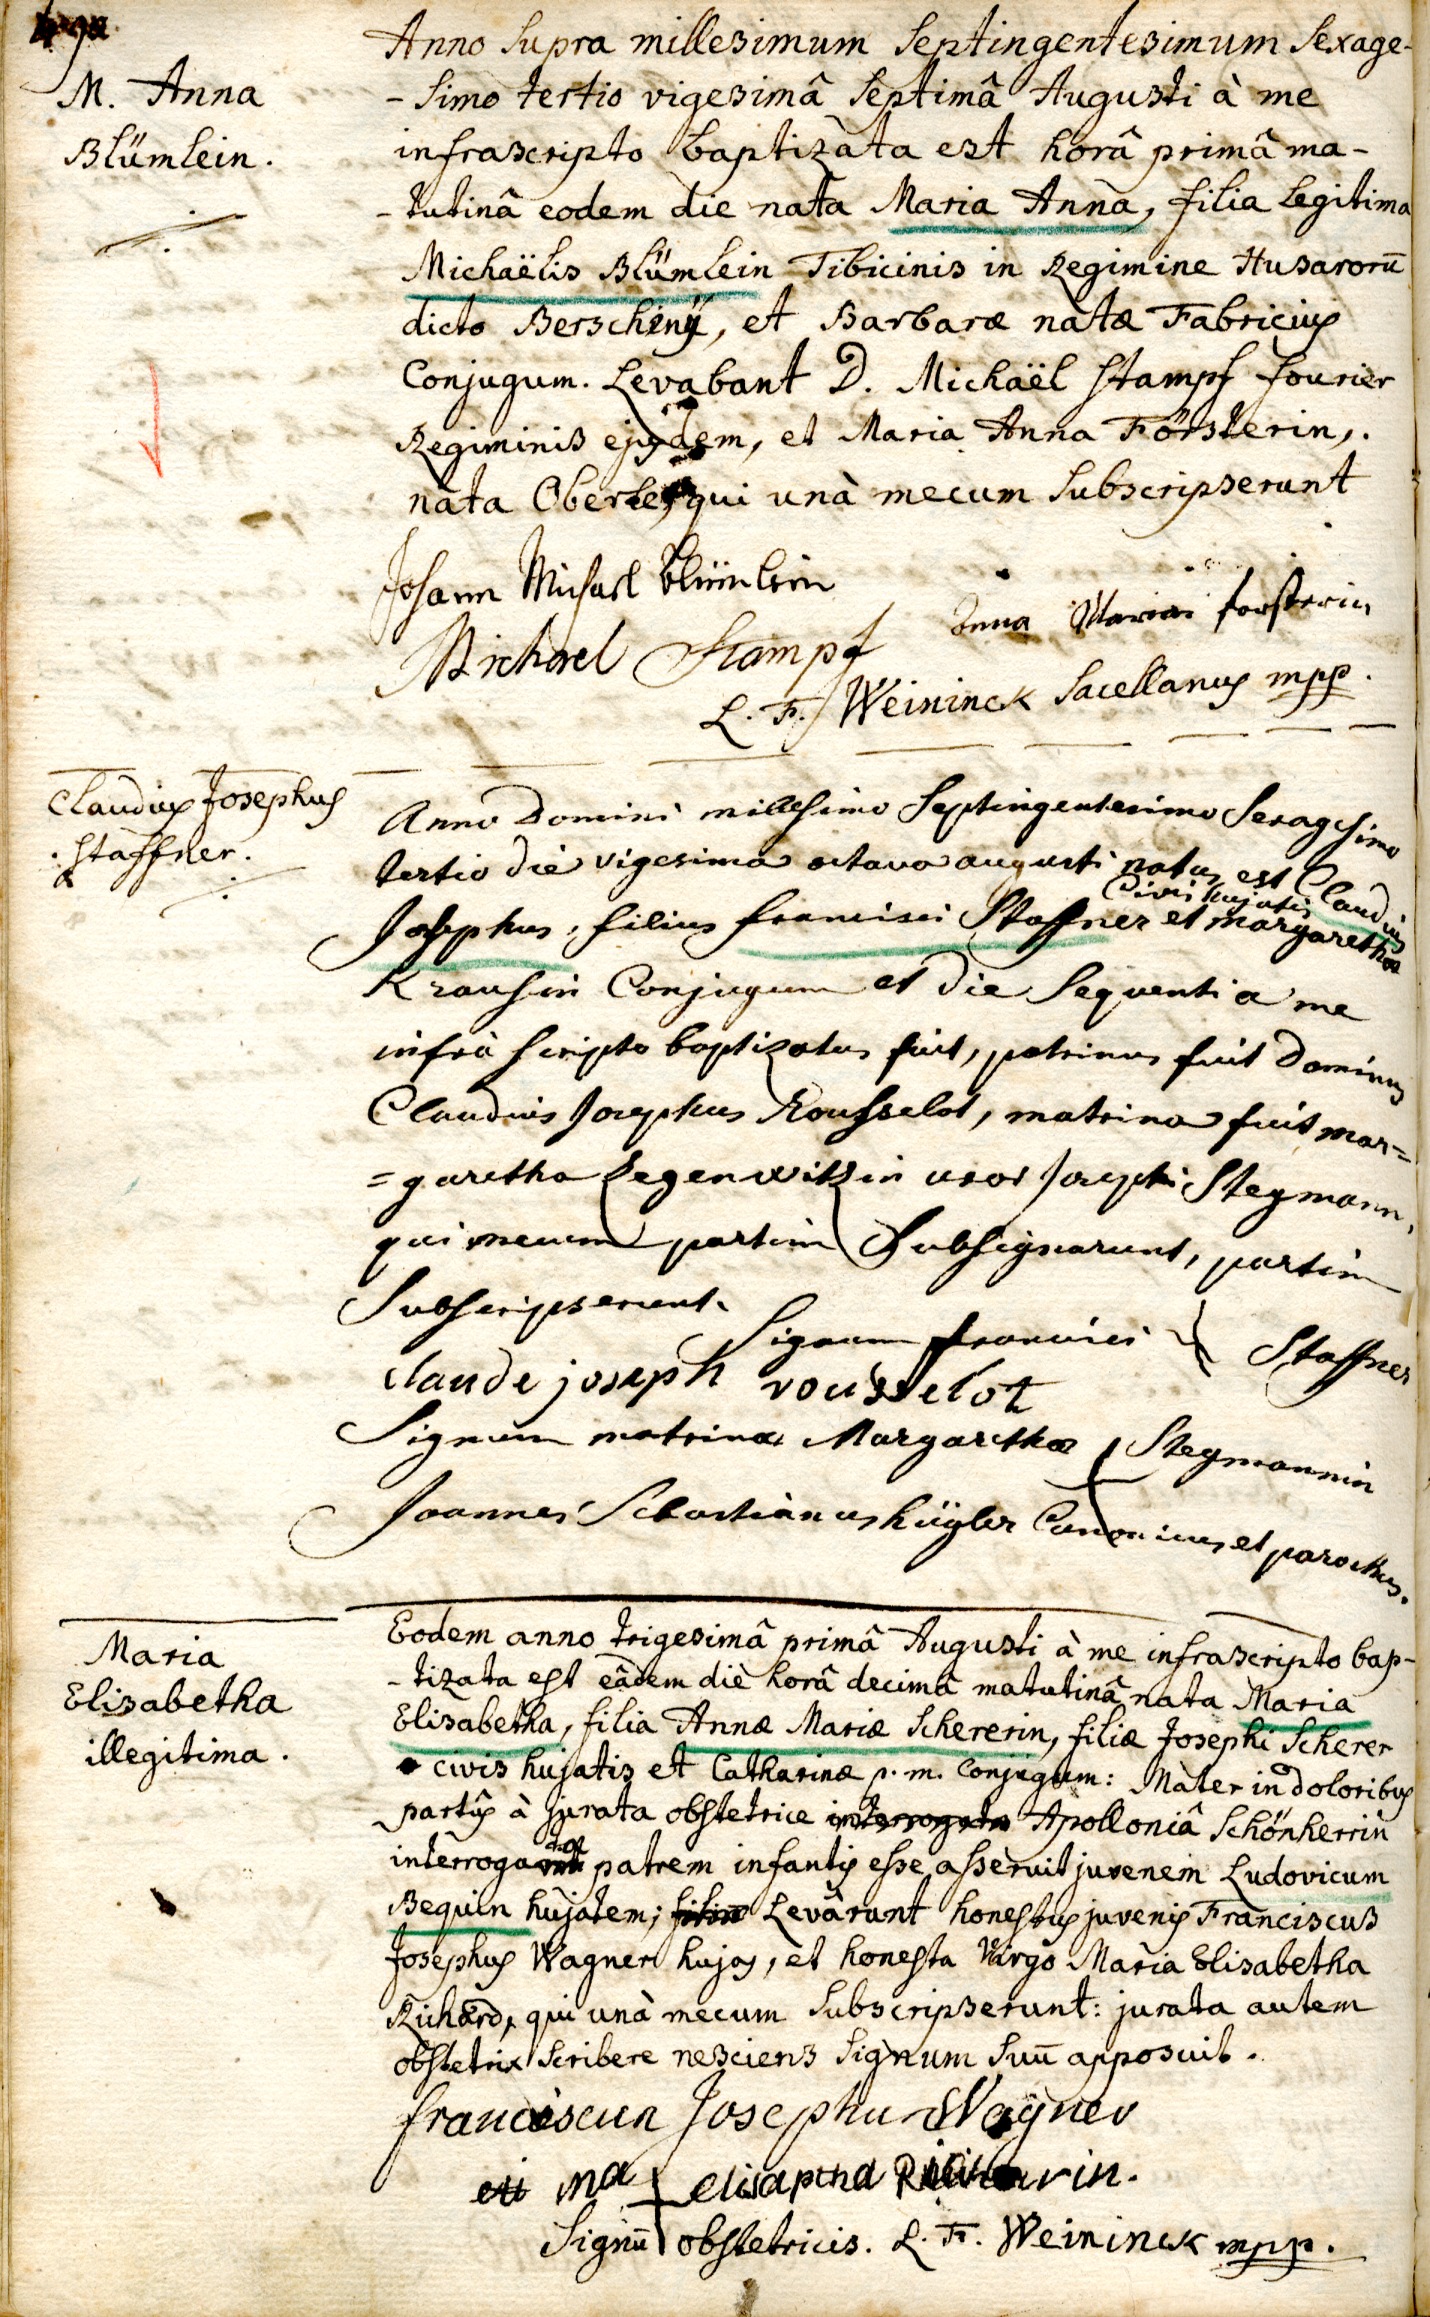 M. Anna
Blümlein.
Anno Supra millesimum Septingentesimum Sexage-
-Simo tertio vigesimâ Septimâ Augusti à me
infrascripto baptizata est horâ primâ ma-
-tutinâ eodem die nata Maria Anna, filia legitima
Michaëlis Blümlein Tibicinis in Regimine Husarorū
dicto Berschiny, et Barbaræ natæ Fabricius
Conjugum. Levabant D. Michaël Stampf fourier
Regiminis ejusdem, et Maria Anna Försterin,
nata Oberle, qui unà mecum Subscripserunt
Johann Michael Blümlein
Anna Maria forsterin
Michael Stampf
L. F. Weininck Sacellanus mpp.
Claudius Josephus
Staffner.
Anno Domini millesimo Septingentesimo Sexagesimo
tertio die vigesima octava augusti natus est Claudius
Civis hujatis
Josephus, filius francisci Staffner et margarethæ
Krausin Conjugum et die Sequenti a me
infrà scripto baptizatus fuit, patrinus fuit Dominus
Claudius Josephus Rousselot, matrina fuit mar=
=garetha Zegenwitzin uxor Josephi Stegmann,
qui mecum partim Subsignarunt, partim
Subscripserunt.
Signum francisci Staffner
claude joseph rousselot
Signum matrinæ Margarethæ Stegmannin
Joannes Sebastianus hügler Canonicus et parochus.
Maria
Elisabetha
illegitima.
Eodem anno trigesimâ primâ Augusti à me infrascripto bap-
-tizata est eâdem die horâ decimâ matutinâ nata Maria
Elisabetha, filia Annæ Mariæ Schererin, filiæ Josephi Scherer
civis hujatis et Catharinæ p. m. Conjugum: Mater in doloribus
partûs à jurata obstetrice interrogata Apolloniâ Schönherrin
interrogata patrem infantis esse asseruit juvenem Ludovicum
Bequin hujatem; Levârunt honestus juvenis Franciscus
Josephus Wagner hujas, et honesta Virgo Maria Elisabetha
Richard, qui unà mecum Subscripserunt: jurata autem
obstetrix Scribere nesciens Signum Suū apposuit.
franciscun Josephu Wagner
ma elisapetha
Signū obstetricis. L. F. Weininck mpp.